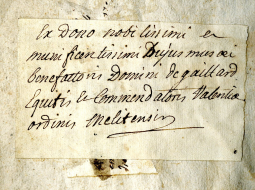 Ex dono nobilissimi et
munificentissimi Dujus musæi
benefattoris Domini de gaillard
Equitis et Commendatoris Valentiæ
ordinis Melitensis